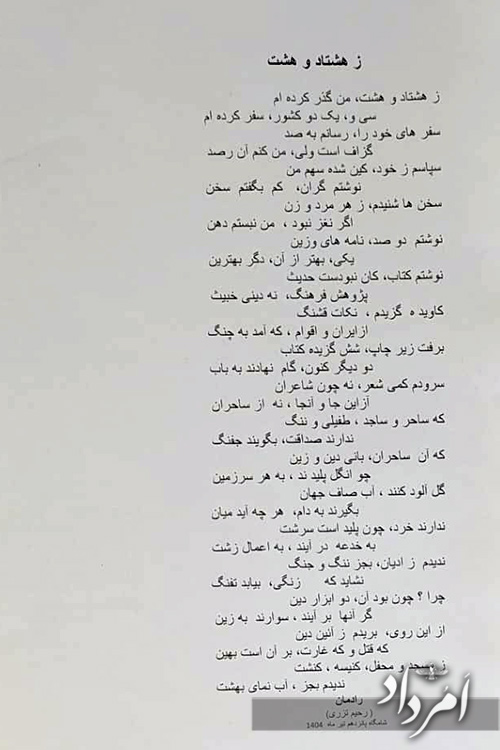 ز هشتاد و هشت
ز هشتاد و هشت، من گذر کرده ام
سی و، یک دو کشور، سفر کرده ام
سفر های خود را، رسانم به صد
گزاف است ولی، من کنم آن رصد
سپاسم ز خود، کین شده سهم من
نوشتم گران، کم بگفتم سخن
سخن ها شنیدم، ز هر مرد و زن
اگر نغز نبود ، من نبستم دهن
نوشتم دو صد، نامه های وزین
یکی، بهتر از آن، دگر بهترین
نوشتم کتاب، کان نبودست حدیث
پژوهش فرهنگ، نه دینی خبیث
کاوید ه گزیدم ، نکات قشنگ
ازایران و اقوام ، که آمد به چنگ
برفت زیر چاپ، شش گزیده کتاب
دو دیگر کنون، گام نهادند به باب
سرودم کمی شعر، نه چون شاعران
ازاین جا و آنجا ، نه از ساحران
که ساحر و ساجد ، طفیلی و ننگ
ندارند صداقت، بگویند جفنگ
که آن ساحران، بانی دین و زین
چو انگل پلید ند ، به هر سرزمین
گل آلود کنند ، آب صاف جهان
بگیرند به دام، هر چه آید میان
ندارند خرد، چون پلید است سرشت
به خدعه در آیند ، به اعمال زشت
ندیدم ز ادیان، بجز ننگ و جنگ
نشاید که زنگی، بیابد تفنگ
چرا ؟ چون بود آن، دو ابزار دین
گر آنها بر آیند ، سوارند به زین
از این روی، بریدم ز آئین دین
که قتل و که غارت، بر آن است بهین
ز مسجد و محفل، کنیسه ، کنشت
ندیدم بجز ، آب نمای بهشت
رادمان
( رحیم نژری)
شامگاه پانزدهم تیر ماه 1404
اَمُرداد